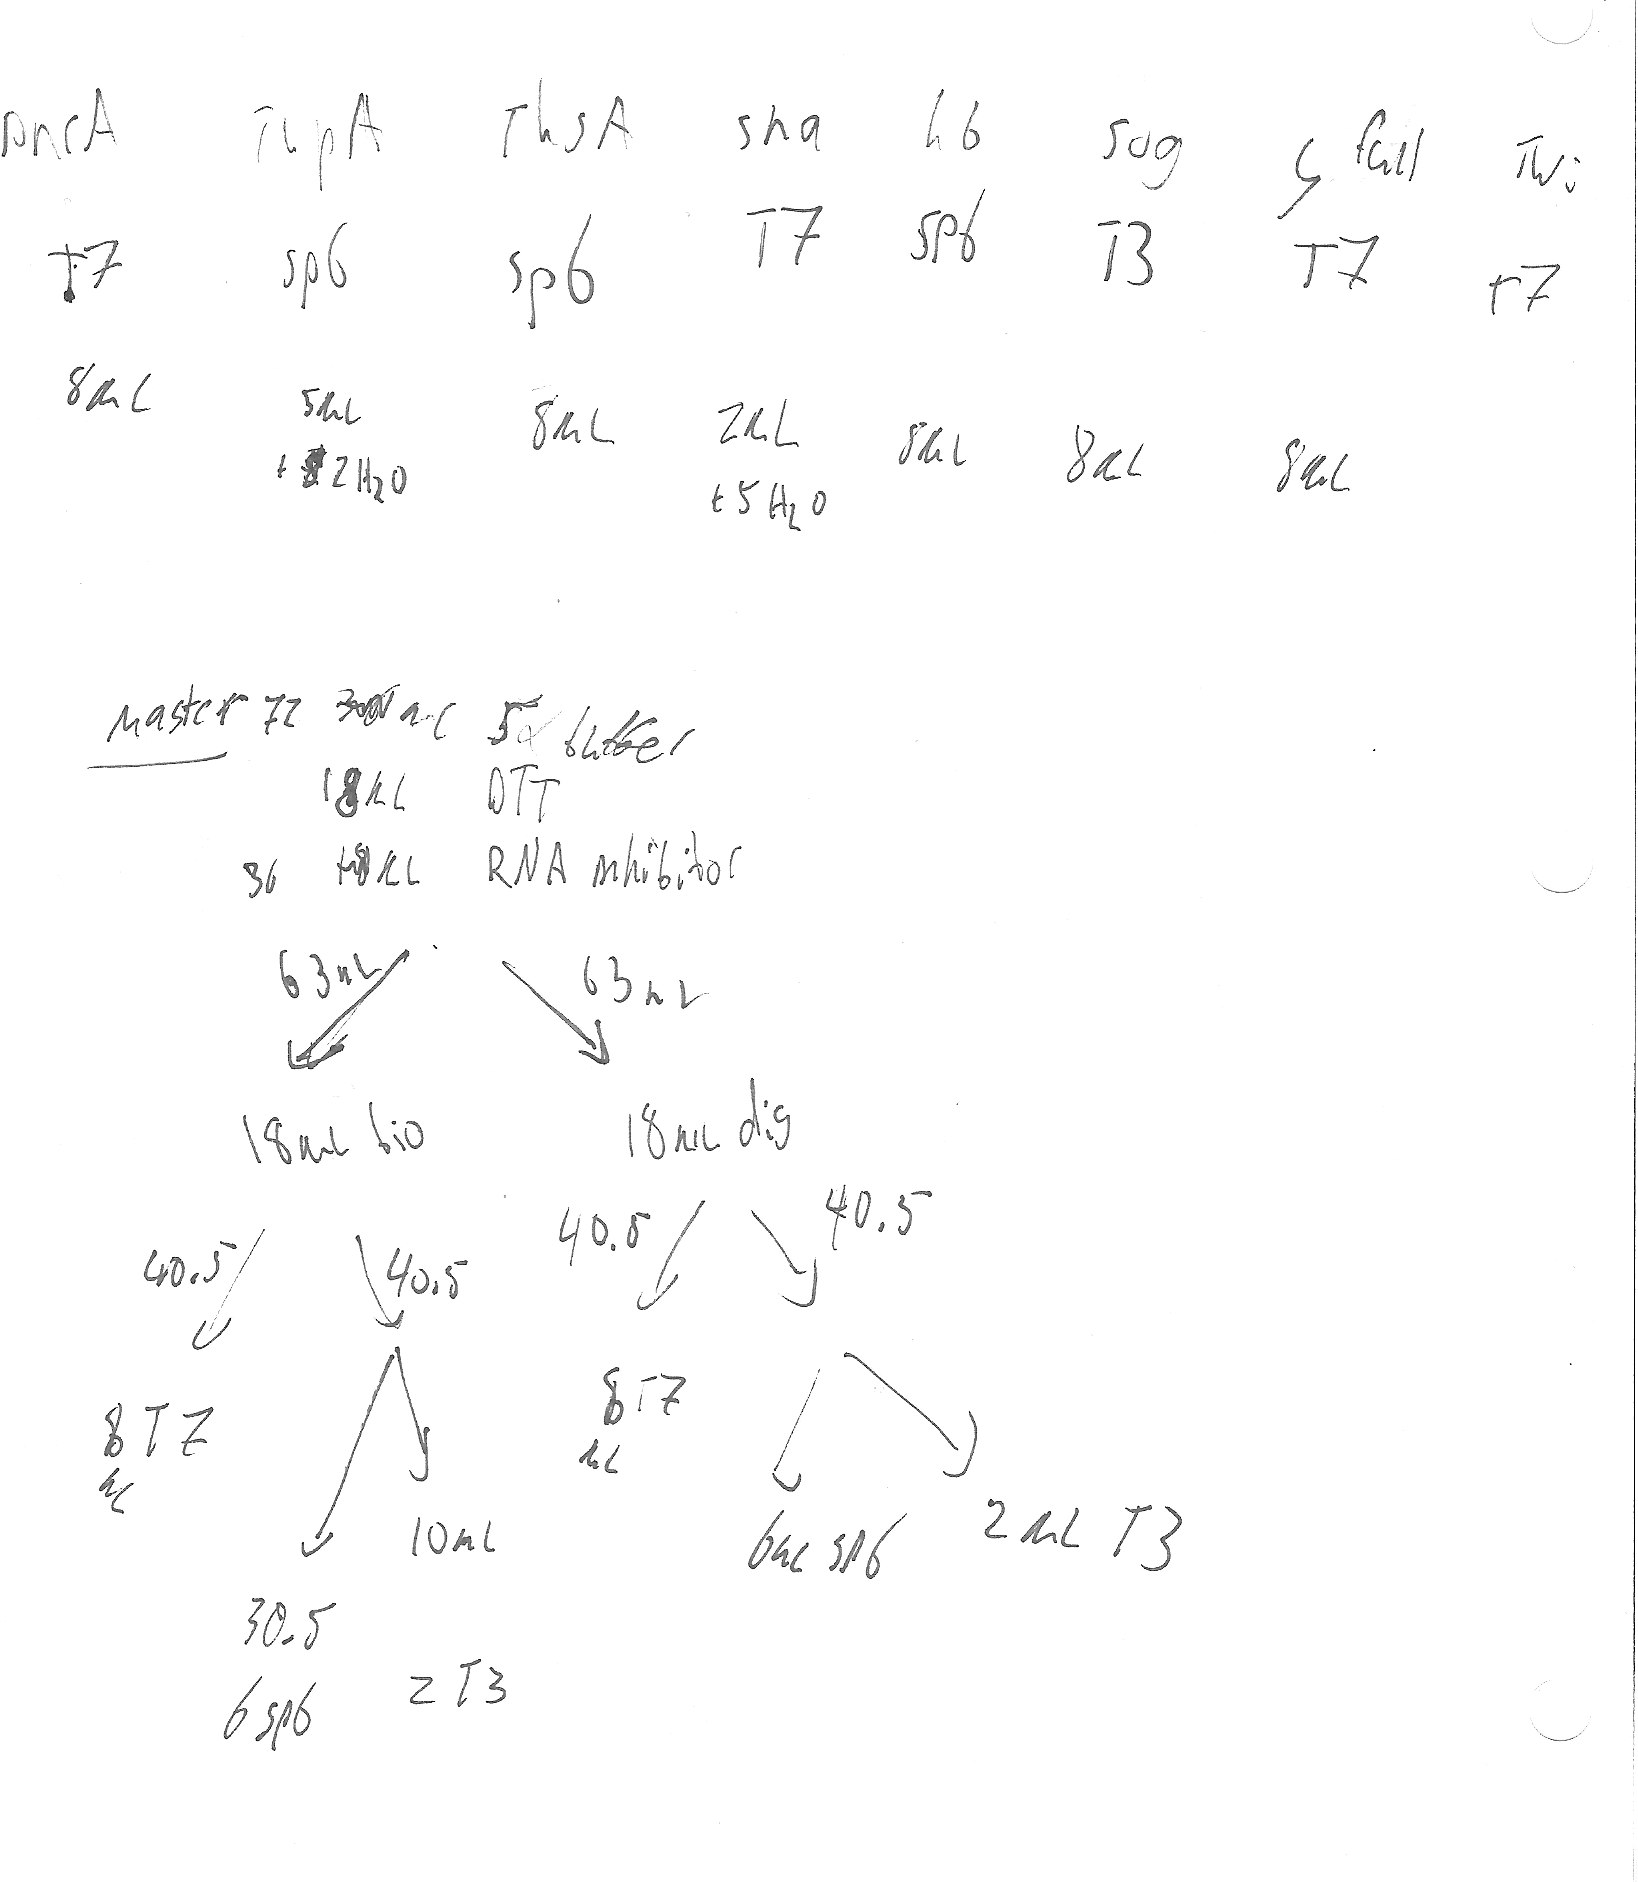 ThsA sna hb sog ς full Twi
T7 sp6 sp6 T7 sp6 T3 T7 T7
8uL 5uL 8uL 2uL 8uL 8uL 8uL
+ 2 H2O + 5 H2O
Master 72 5x buffer
18uL DTT
36 RNA inhibitor
63uL 63uL
18uL bio 18uL dig
40.5 40.5 40.5 40.5
8 T7 8 T7
uL uL
10uL 6uL sp6 2uL T3
30.5
6 sp6 2 T3